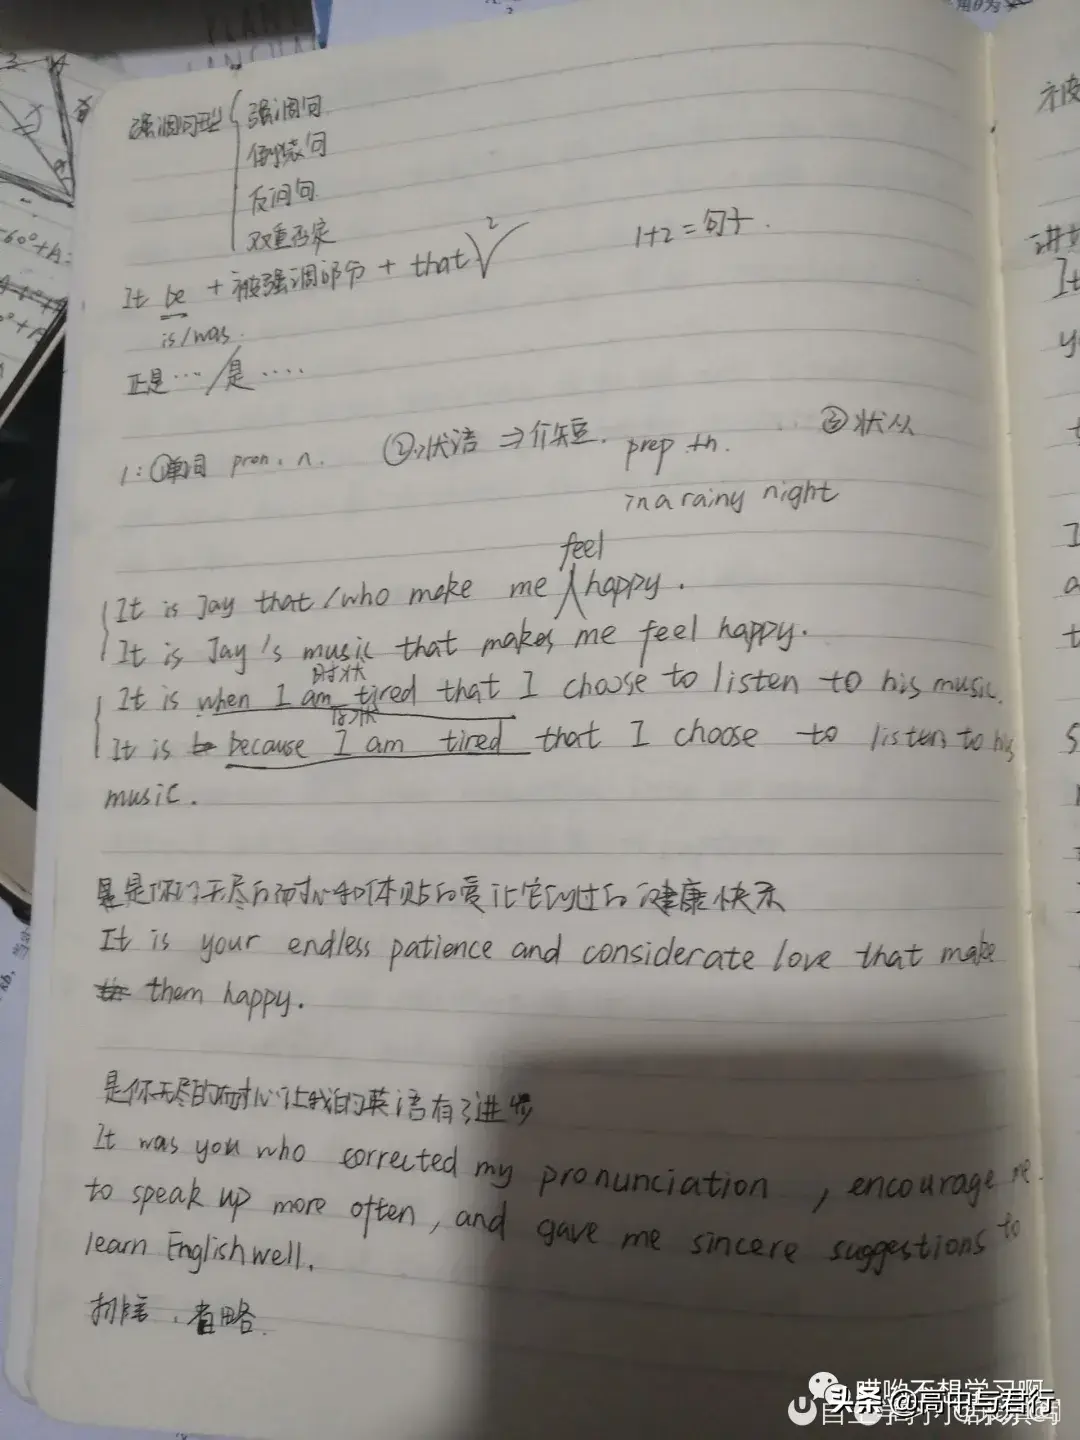 强调句型 强调句
倒装句
反问句
双重否定
It be + 被强调部分 + that √ 2
1+2 = 句子.
is/was.
正是…/是….
1: ①单词 pron. n. ②状语 ⇒ 介短. prep + n. ③状从
in a rainy night
feel
It is Jay that/who make me happy.
It is Jay's music that makes me feel happy.
时状
It is when I am tired that I choose to listen to his music.
因状
It is because I am tired that I choose to listen to his
music.
是你们无尽的耐心和体贴的爱让它们过的健康快乐
It is your endless patience and considerate love that make
them happy.
是你无尽的耐心让我的英语有了进步
It was you who corrected my pronunciation, encourage me
to speak up more often, and gave me sincere suggestions to
learn English well.
排倍, 省略.
哎哟不想学习啊
头条 @高中与君行